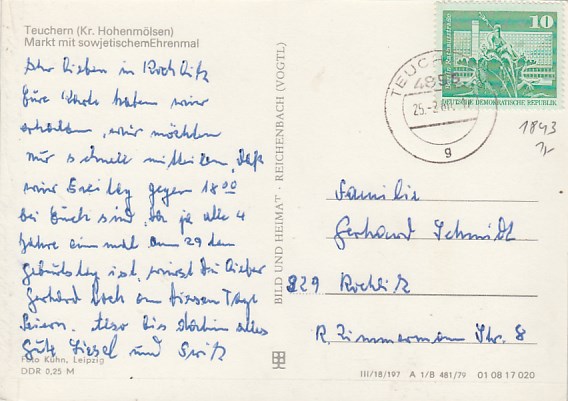 Teuchern (Kr. Hohenmölsen)
Markt mit sowjetischemEhrenmal
Ihr Lieben in Rochlitz
Eure Karte haben wir
erhalten, wir möchten
nur schnell mitteilen, daß
wir Freitag gegen 18 00
bei Euch sind, da ja alle 4
Jahre einmal am 29 der
Geburtstag ist, wirst Du lieber
Gerhard doch an diesem Tage
feiern. Also bis dahin alles
Gute Liesel und Fritz
Foto Kühn, Leipzig
DDR 0,25 M
BILD UND HEIMAT · REICHENBACH (VOGTL)
10
DEUTSCHE DEMOKRATISCHE REPUBLIK
TEUCH
25.-2
g
1843
Familie
Gerhard Schmidt
929 Rochlitz
R. Zimmermann Str. 8
III/18/197 A 1/B 481/79 01 08 17 020